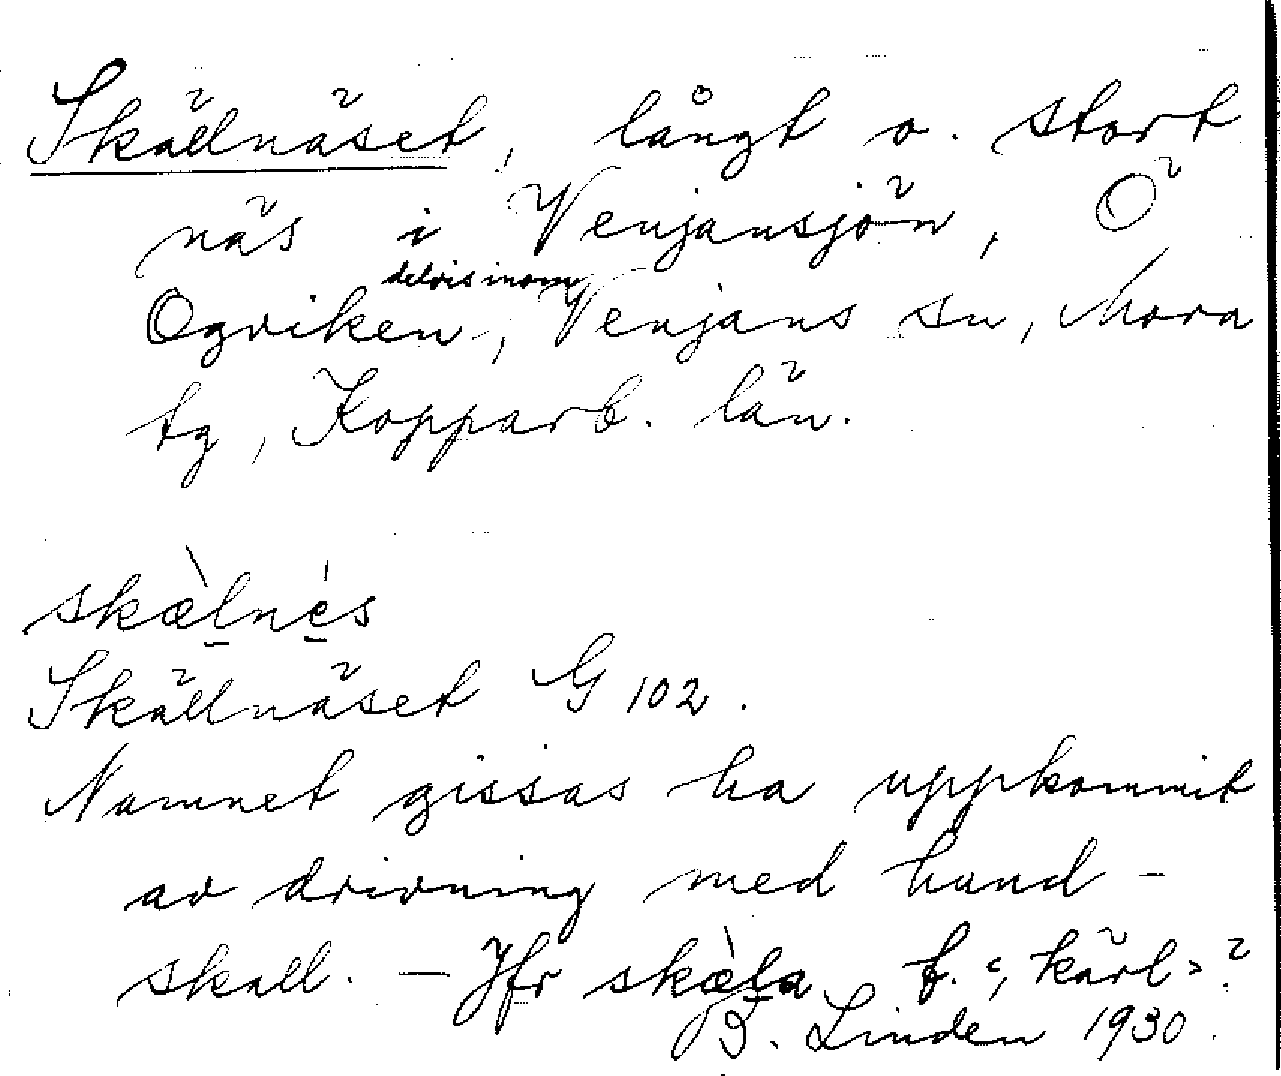 Skällnäset, långt o. stort
näs i Venjansjön, Ö
delvis inom
Ogviken, Venjans sn, Mora
tg, Kopparb. län.
skæ̀l̠né̠s
Skällnäset G 102.
Namnet gissas ha uppkommit
av drivning med hund-
skall. — Jfr skæ̀l̠a f. ", kärl"?
B. Linden 1930.